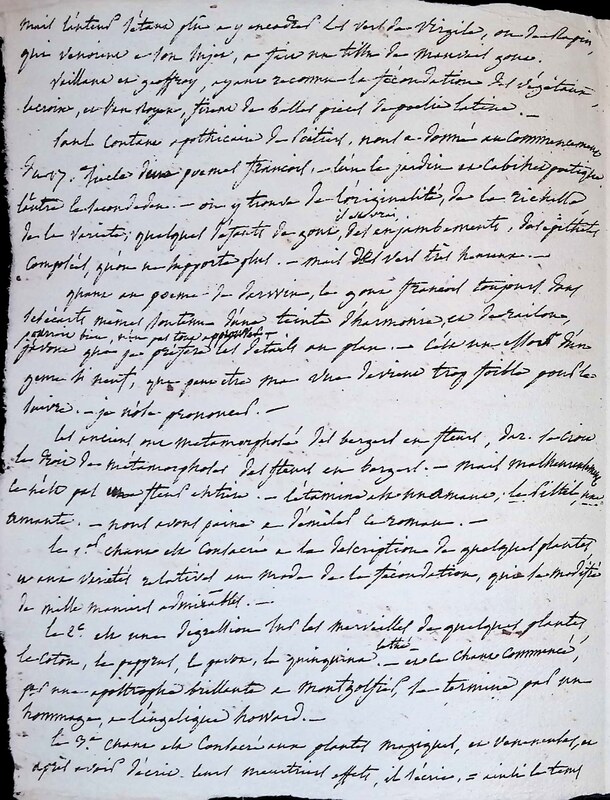 mais l'auteur s'étant plu a y encadrer les vers de Virgile, ou de Rapin,
qui venaient a son sujet, a fait un tissu de mauvais gout.
Vaillant et geoffroy, ayant reconnu la fécondation des végétaux,
lacroix, et Van Royen, firent de belles pieces de poesie latine. —
paul contant apothicaire de Poitiers, nous a donné au commencement
du 17. siecle deux poemes françois, — l'un le jardin et cabinet poetique
l'autre le second eden. — on y trouve de l'originalité, de la richesse
de la varieté; quelques défauts de gout, il est vrai, des enjambements, des épithetes
composées, qu'on ne supporte plus. — mais des vers très heureux. —
quant au poeme de darwin, le gout françois toujours dans
ses écarts mêmes soutenu d'une teinte d'harmonie, et de raison,
pourroit bien, n'en pas tout approuver. —
j'avoue que je préfère les détails au plan. — c'est un effort d'un
genre si neuf, que peut etre ma vue devient trop foible pour le
suivre. — je n'ose prononcer. —
les anciens ont metamorphosé des bergers en fleurs, dar. se croit
le droit de métamorphoser des fleurs en bergers. — mais malheureusement
ce n'est pas une fleur entière. — l'étamine est un amant, le pistil, une
amante. — nous avons peine a démêler ce roman. —
le 1.er chant est consacré a la description de quelques plantes
et aux varietés relatives au mode de la fécondation, qui se modifie
de mille manieres admirables. —
le 2.e est une digression sur les merveilles de quelques plantes
le coton, le papyrus, le pavot, le quinquina — et ce chant commencé,
par une apostrophe brillante a Montgolfier, se termine par un
hommage, a l'angelique howard. —
le 3.e chant est consacré aux plantes magiques, et veneneuses, et
après avoir décrit leurs meurtriers effets, il s'écrie, = ainsi le tems